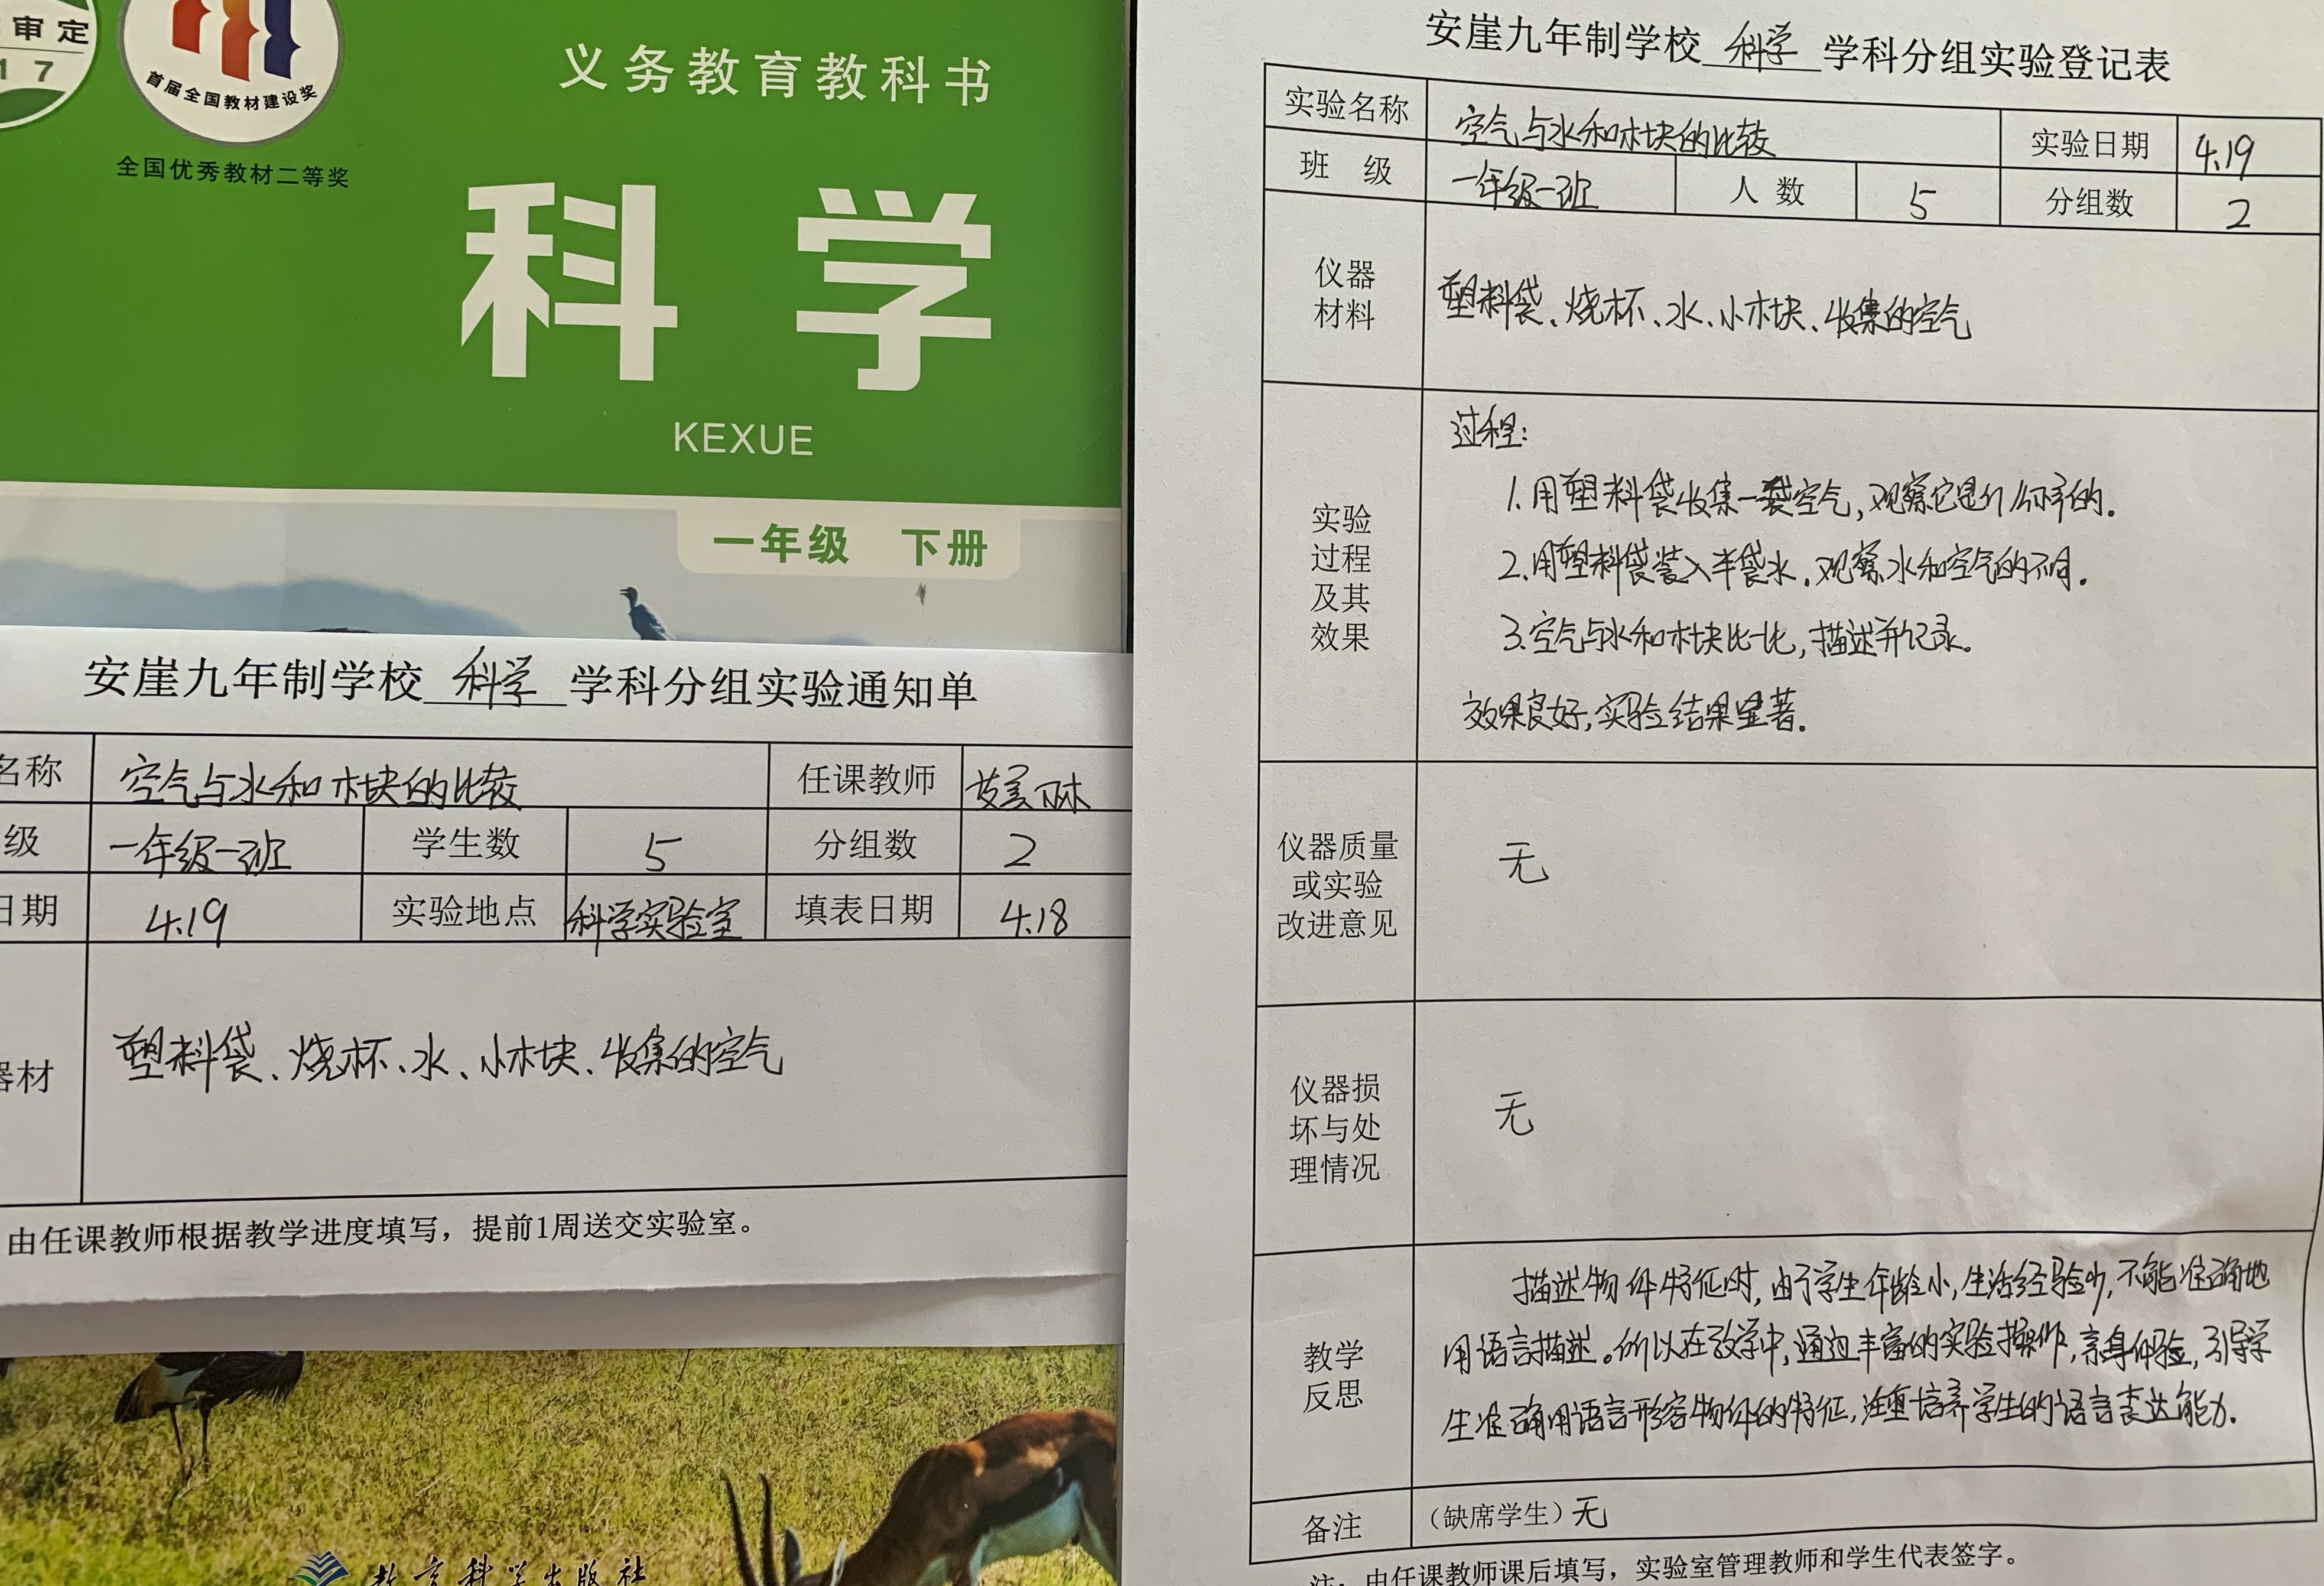 审定
17
首届全国教材建设奖
全国优秀教材二等奖
义务教育教科书
科学
KEXUE
一年级 下册
安崖九年制学校 科学 学科分组实验通知单
名称 空气与水和木块的比较 任课教师
级 一年级一班 学生数 5 分组数 2
日期 4.19 实验地点 科学实验室 填表日期 4.18
器材 塑料袋、烧杯、水、小木块、收集的空气
由任课教师根据教学进度填写，提前1周送交实验室。
教育科学出版社
安崖九年制学校 科学 学科分组实验登记表
实验名称 空气与水和木块的比较 实验日期 4.19
班 级 一年级一班 人数 5 分组数 2
仪器
材料
塑料袋、烧杯、水、小木块、收集的空气
实验
过程
及其
效果
过程:
1.用塑料袋收集一袋空气,观察它是什么样的.
2.用塑料袋装入半袋水,观察水和空气的不同.
3.空气与水和木块比一比,描述并记录。
效果良好,实验结果显著.
仪器质量
或实验
改进意见
无
仪器损
坏与处
理情况
无
教学
反思
描述物件特征时,由于学生年龄小,生活经验少,不能准确地
用语言描述。所以在教学中,通过丰富的实验操作,亲身体验,引导学
生准确用语言形容物件的特征,注重培养学生的语言表达能力.
备注 (缺席学生)无
注：由任课教师课后填写，实验室管理教师和学生代表签字。